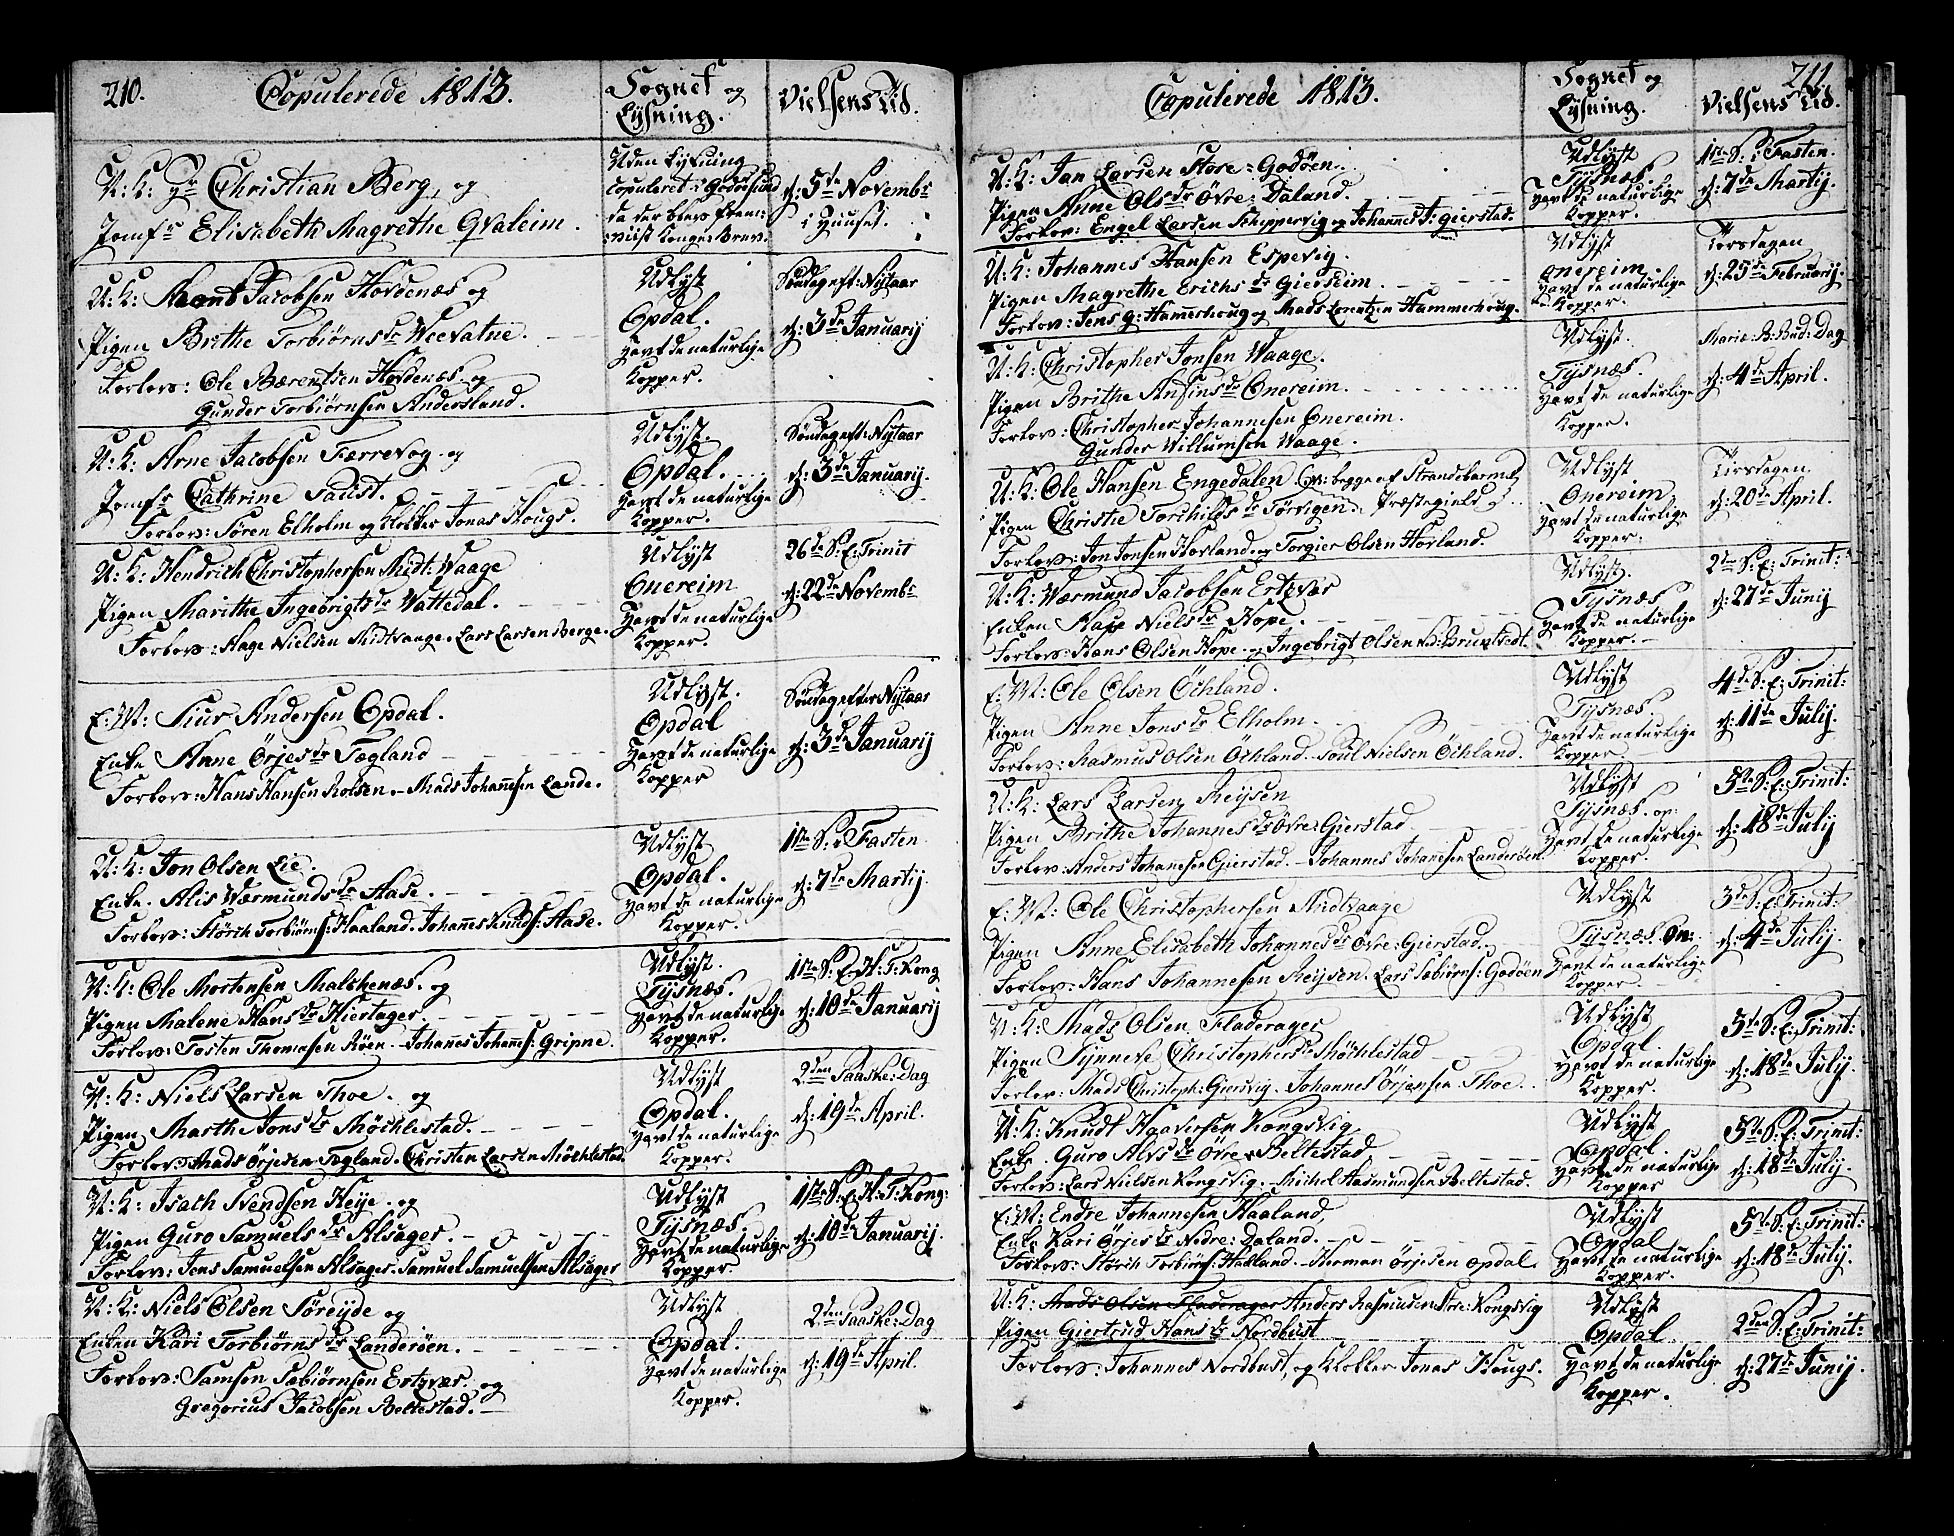 210.
Copulerede 1813.
Sognet og
Lysning.
Vielsens Tid.
U: K: Hr Christian Berg, og
Jomfr Elisabeth Magrethe Qvaleim.
Uden Lysning
copuleret i Godøsund
da der blev frem:
:viist Konge-Brev.
d: 5te Novembr
i Huuset.
U: K: Jacobsen Hovdenæs og
Pigen Brithe Torbiørnsdr Weevatne.
Forlov: Ole Bærentsen Hovdenæs og
Gunder Torbiørnsen Andersland.
Udlyst
Opdal.
Havt de naturlige
Kopper.
Søndag eft: Nytaar
d: 3de Januarij
U: K: Arne Jacobsen Færrevog og
Jomfr Cathrine Faust.
Forlov: Søren Elholm og Klokker Jonas Hougs.
Udlyst.
Opdal.
Havt de naturlige
Kopper.
Søndag eft: Nytaar
d: 3de Januarij.
U: K: Hendrich Christophersen Midt: Waage
Pigen Marithe Ingebrigtsdr Vattedal.
Forlov: Hage Nielsen Midtvaage. Lars Larsen Berge.
Udlyst
Onereim
Havt de naturlige
Kopper.
26de S: E: Trinit
d: 22de Novembr
E: M: Siur Andersen Opdal.
Enke Anne Örjesdr Tegland
Forlov: Hans Hansen Rolsen. Mads Johannesen Lande.
Udlyst.
Opdal
Havt de naturlige
Kopper
Søndag efter Nytaar
d: 3de Januarij
U: K: Jon Olsen Lie.
Enke. Alis Wærmundsdr Hase.
Forlov: Størch Torbiørns: Haaland. Johannes Knuds: Hase.
Udlyst
Opdal.
Havt de naturlige
Kopper.
1ste S: i Fasten
d: 7de Martij.
U: K: Ole Mortensen Malchenæs. og
Pigen Malene Hansdr Hiertager.
Forlov: Tosten Thomæsen Röen. Johannes Johanns: Gripne.
Udlyst.
Tysnæs.
Havt de naturlige
Kopper.
1ste S: E: H: T: Kong
d: 10de Januarij
U: K: Niels Larsen Thoe. og
Pigen Marthe Jonsdr Möchlestad.
Forlov: Mads Örjesen Tegland. Christen Larsen Möchlestad.
Udlyst
Opdal.
Havt de naturlige
Kopper.
2den Paaske: Dag
d: 19de April.
U: K: Isach Svendsen Heye. og
Pigen Guro Samuelsdr Alsager.
Forlov: Jens Samuelsen Alsager. Samuel Samuelsen Alsager
Udlyst
Tysnæs.
Havt de naturlige
Kopper.
1ste S: E: H: T: Kong:
d: 10de Januarij.
U: K: Niels Olsen Söreyde og
Enken Kari Torbiørnsdr Landeröen.
Forlov: Samson Sæbiørnsen Ertzvæs. og
Gregorius Jacobsen Beltestad.
Udlyst
Opdal.
Havt de naturlige
Kopper.
2den Paaske: Dag
d: 19de April.
Copulerede 1813.
Sognet og
Lysning.
211.
Vielsens Tid.
U: K: Jan Larsen Store: Godöen.
Pigen Anne Olsdr Övre: Daland.
Forlov: Engel Larsen Skippervig og Johannes J: Gierstad.
Udlyst
Tysnæs.
Havt de naturlige
Kopper.
1ste S: i Fasten.
d: 7de Martij.
U: K: Johannes Hansen Espevig.
Pigen Magrethe Erichsdr Gierseim.
Forlov: Jens G: Hammerhoug og Mads Lorentzen Hammerhoug.
Udlyst
Onereim.
Havt de naturlige
Kopper.
Torsdagen
d: 25de Februarij.
U: K: Christopher Jonsen Waage.
Pigen Brithe Ansinsdr Onereim.
Forlov: Christopher Johannesen Onereim.
Gunder Willumsen Waage.
Udlyst.
Tysnæs.
Havt de naturlige
Kopper.
Mariæ: B: Bud: Dag
d: 4de April.
U: K: Ole Hansen Engedalen begge af Strandebarms
Pigen Christie Torchildsdr Torvigen. Præstegield.
Forlov: Jon Jonsen Hovland. og Torgier Olsen Hovland.
Udlyst
Onereim
Havt de naturlige
Kopper.
Tirsdagen.
d: 20de April.
U: K: Wærmund Jacobsen Ertzvær
Enken Nielsdr Hope.
Forlov: Hans Olsen Hope. og Ingebrigt Olsen Bruntvedt.
Udlyst.
Tysnæs
Havt de naturlige
Kopper.
2den S: E: Trinit:
d: 27de Junij
E: M: Ole Olsen Öchland.
Pigen Anne Jonsdr Elholm.
Forlov: Rasmus Olsen Öchland. Poul Nielsen Öchland.
Udlyst
Tysnæs.
Havt de naturlige
Kopper
4de S: E: Trinit:
d: 11te Julij.
U: K: Lars Larsen Reysen
Pigen Brithe Johannesdr Övre: Gierstad
Forlov: Anders Johannesen Gierstad. Johannes Johannesen Landeröen.
Udlyst
Tysnæs. op:
Havt de naturlige
Kopper.
5te S: E: Trinit:
d: 18de Julij
E: M: Ole Christophersen Midtvaage
Pigen Anne Elisabeth Johannesdr Övre: Gierstad.
Forlov: Hans Johannesen Reysen. Lars Sæbiørns: Godöen
Udlyst
Tysnæs. On:
Havt de naturlige
Kopper.
3de S: E: Trinit:
d: 4de Julij.
U: K: Mads Olsen Fladerager
Pigen Synneve Christophersdr Möchlestad
Forlov: Mads Christoph: Giersvig. Johannes Örjensen Thoe.
Udlyst
Opdal.
Havt de naturlige
Kopper.
5te S: E: Trinit:
d: 18de Julij.
U: K: Knudt Haaversen Kongsvig
Enke. Guro Alvsdr Övre: Beltestad
Forlov: Lars Nielsen Kongsvig. Michel Aasmundsen Beltestad.
Udlyst
Opdal.
Havt de naturlige
Kopper
5te S: E: Trinit:
d: 18de Julij.
E: M: Endre Johannesen Haaland,
Enke Kari Örjesdr Nedre: Daland.
Forlov: Störch Torbiørns: Haaland. Herman Örjesen Opdal.
Udlyst
Opdal
Havt de naturlige
Kopper.
5te S: E: Trinit:
d: 18de Julij.
U: K: Mads Olsen Fladerager Anders Rasmusen Kongsvig
Pigen Giertrud Hansdr Nordhust
Forlov: Johannes Nordhust, og Klokker Jonas Hougs.
Udlyst
Opdal.
Havt de naturlige
Kopper.
2den S: E: Trinit:
d: 27de Junij.